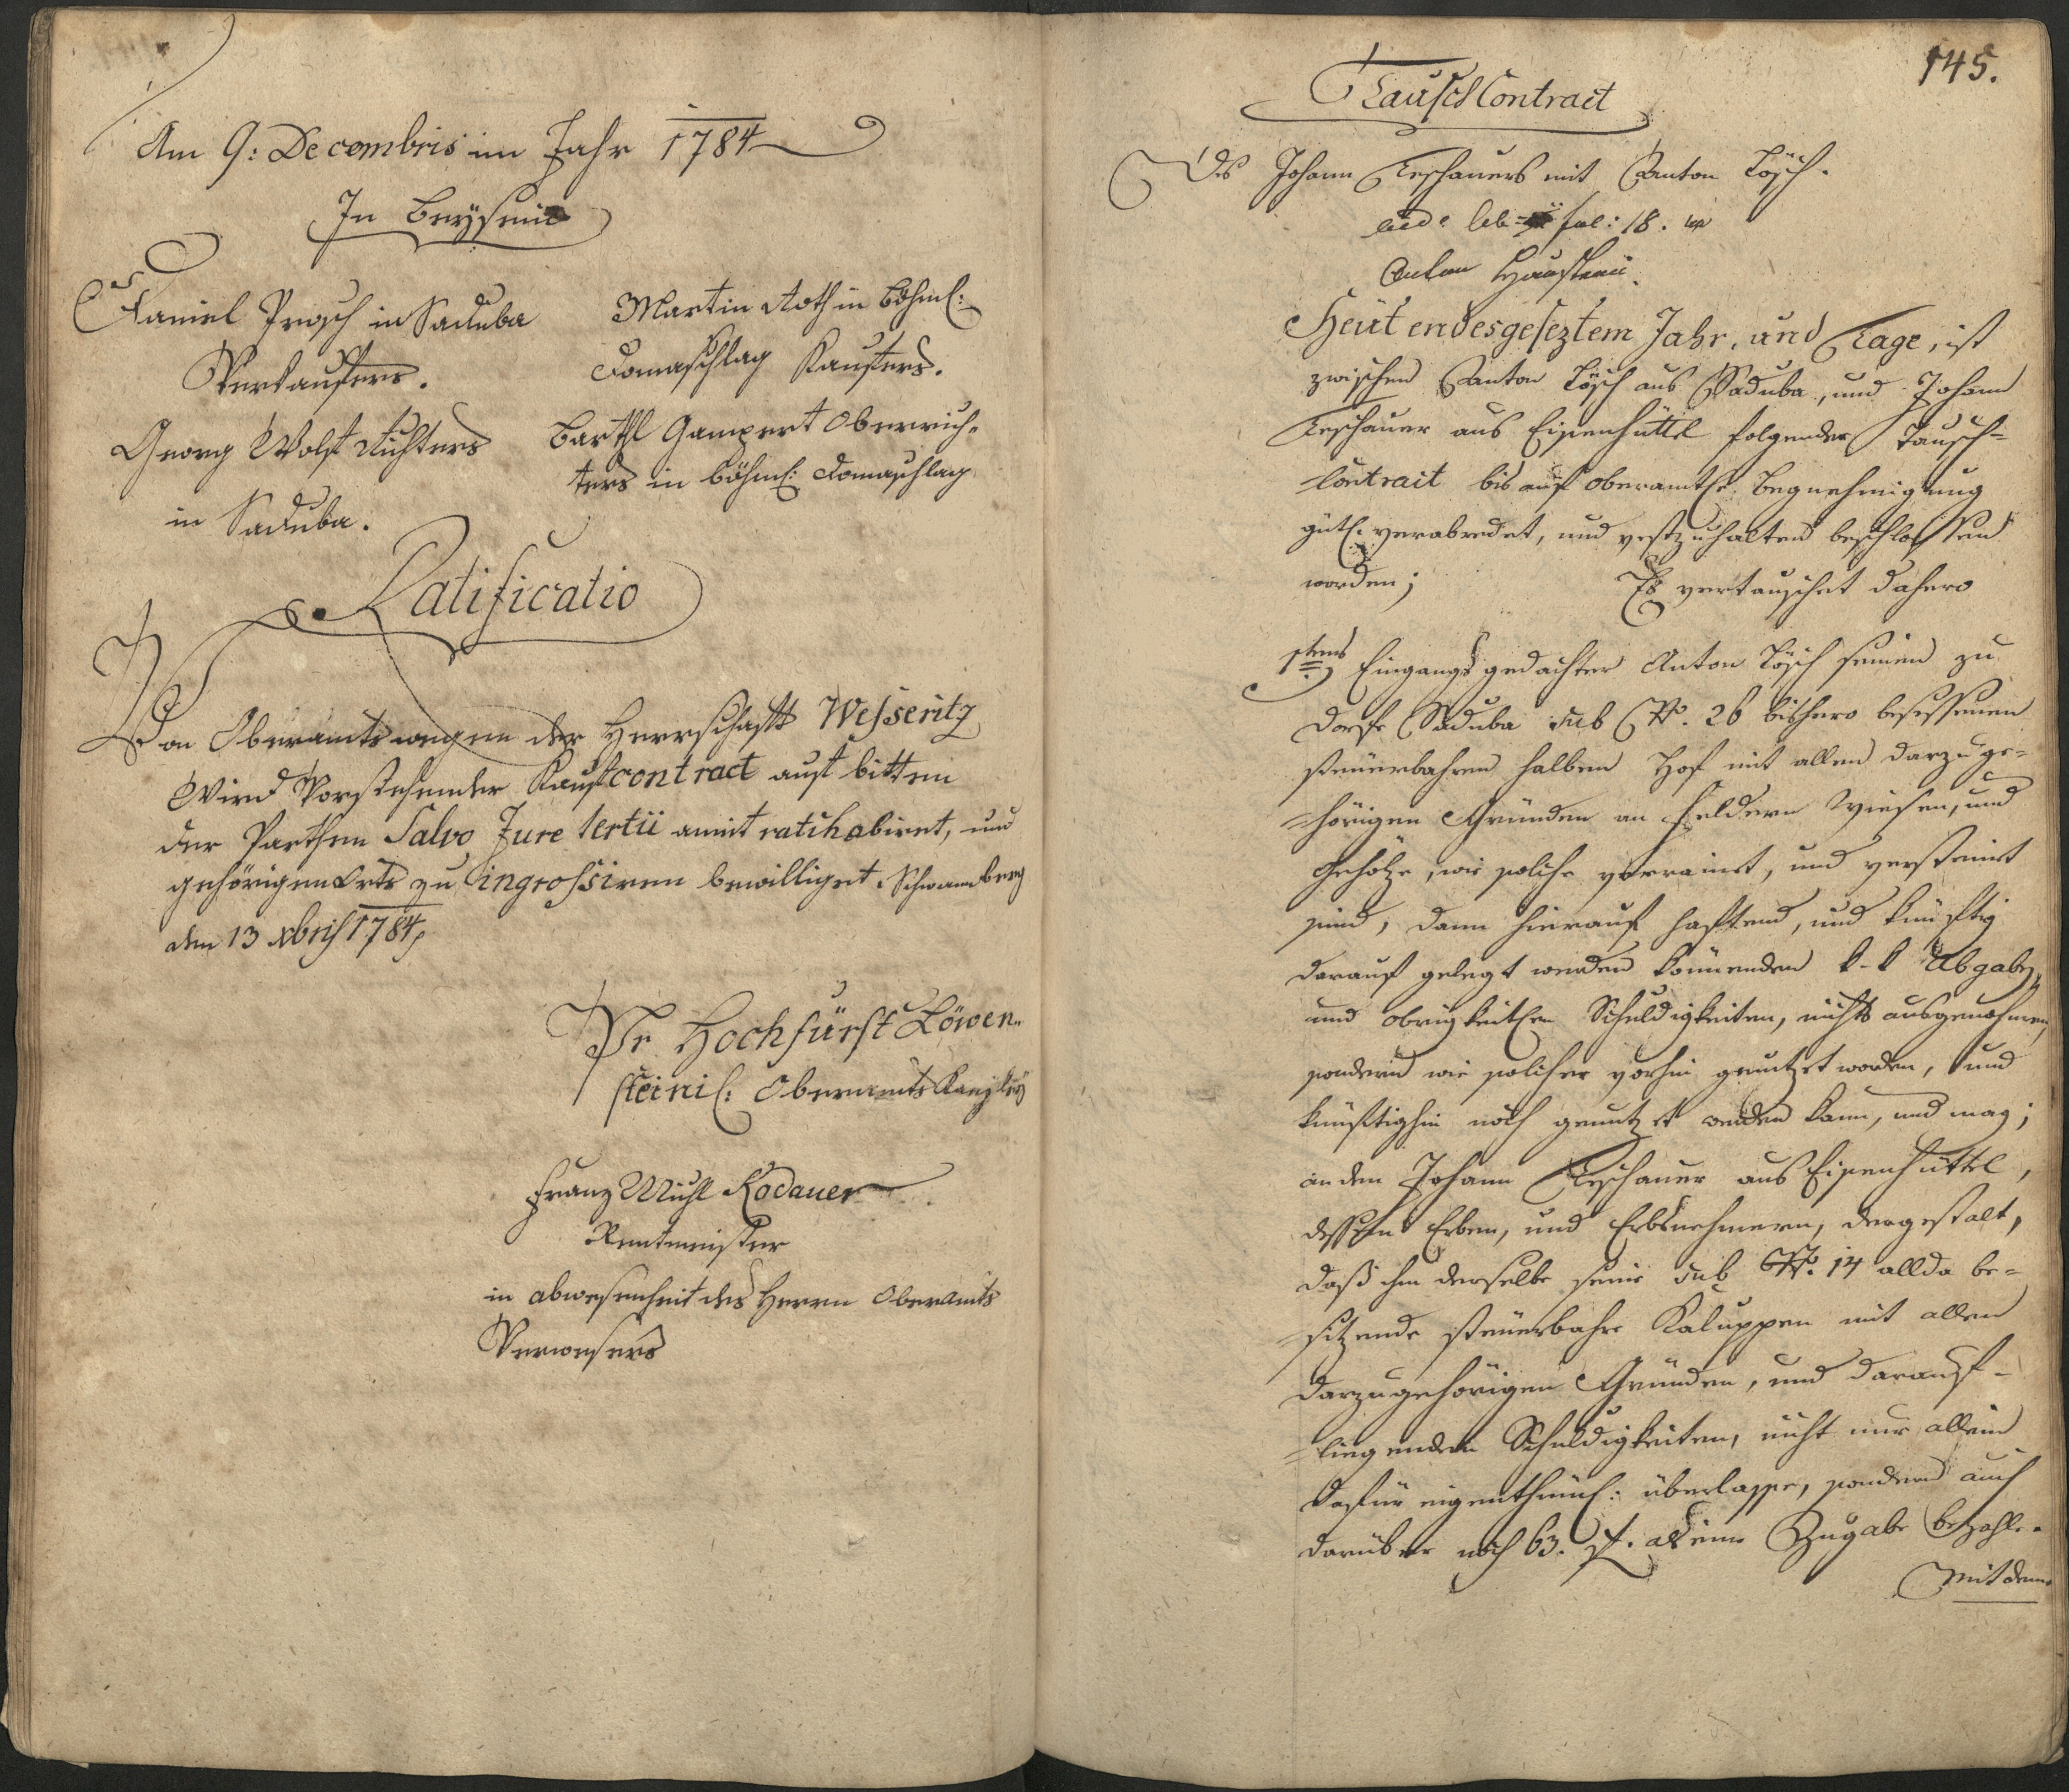 Am 9: Decembris im Jahr 1784
In Beyseyn
Daniel Prosch in Saduba
Verkaufers.
Georg Wolf Richters
in Saduba.
Martin Roth in böhml:
Domaschlag Kaufers.
Barthl Gampert Oberrich-
ters in böhml: Domaschlag
Ratificatio
Von Oberamtswegen der Herrschaft Wesseritz
Wird Vorstehender Kaufcontract auf bitten
der Parthen Salvo Jure tertii amit ratihabiret, und
gehörigen Orts zu ingrossiren bewilliget. Schwamberg
den 13 xbris 1784
Pr Hochfürst Löwen-
steinil: Oberamts Kanzley
Franz Michl Rodauer
Rentmeister
in abwesenheit des Herrn Oberamts
Verwesers
145.
Tausch Contract
Des Johann Teschauers mit Anton Lösch.
fol: 18.
Anton
Heüt endesgeseztem Jahr, und Tage, ist
zwischen Anton Lösch aus Saduba, und Johann
Teschauer aus Eisenhüttel folgender Tausch-
Contract bis auf oberamtle. Begnehmigung
gütl. verabredet, und vestzuhalten beschlossen
worden; Es vertauschet dahero
1stens Eingangs gedachter Anton Lösch seinen zu
Dorfe Saduba sub No. 26 bishero besessenen
steüerbahren halben Hof mit allen darzuge-
hörigen Gründen an Feldern Wiesen, und
Gehölze, wie solche verrainet, und versteinet
sind, dann hierauf haftend, und künftig
darauf gelegt werden könnenden k-k Abgaben,
und obrigkeitlen Schuldigkeiten, nichts ausgenohmen,
sondern wie solcher vorhin genutzet worden, und
künftighin noch genutzet werden kann, und mag;
an den Johann Teschauer aus Eisenhüttel,
dessen Erben, und Erbsnehmern, dergestalt,
daß ihm derselbe seine sub No. 14 allda be-
sitzende steüerbahre Kaluppen mit allen
darzugehörigen Gründen, und darauf-
liegenden Schuldigkeiten, nicht nur allein
dafür eigenthüml: überlasse, sondern auch
darüber noch 63. f. als eine Zugabe bezahle.
Mit deme